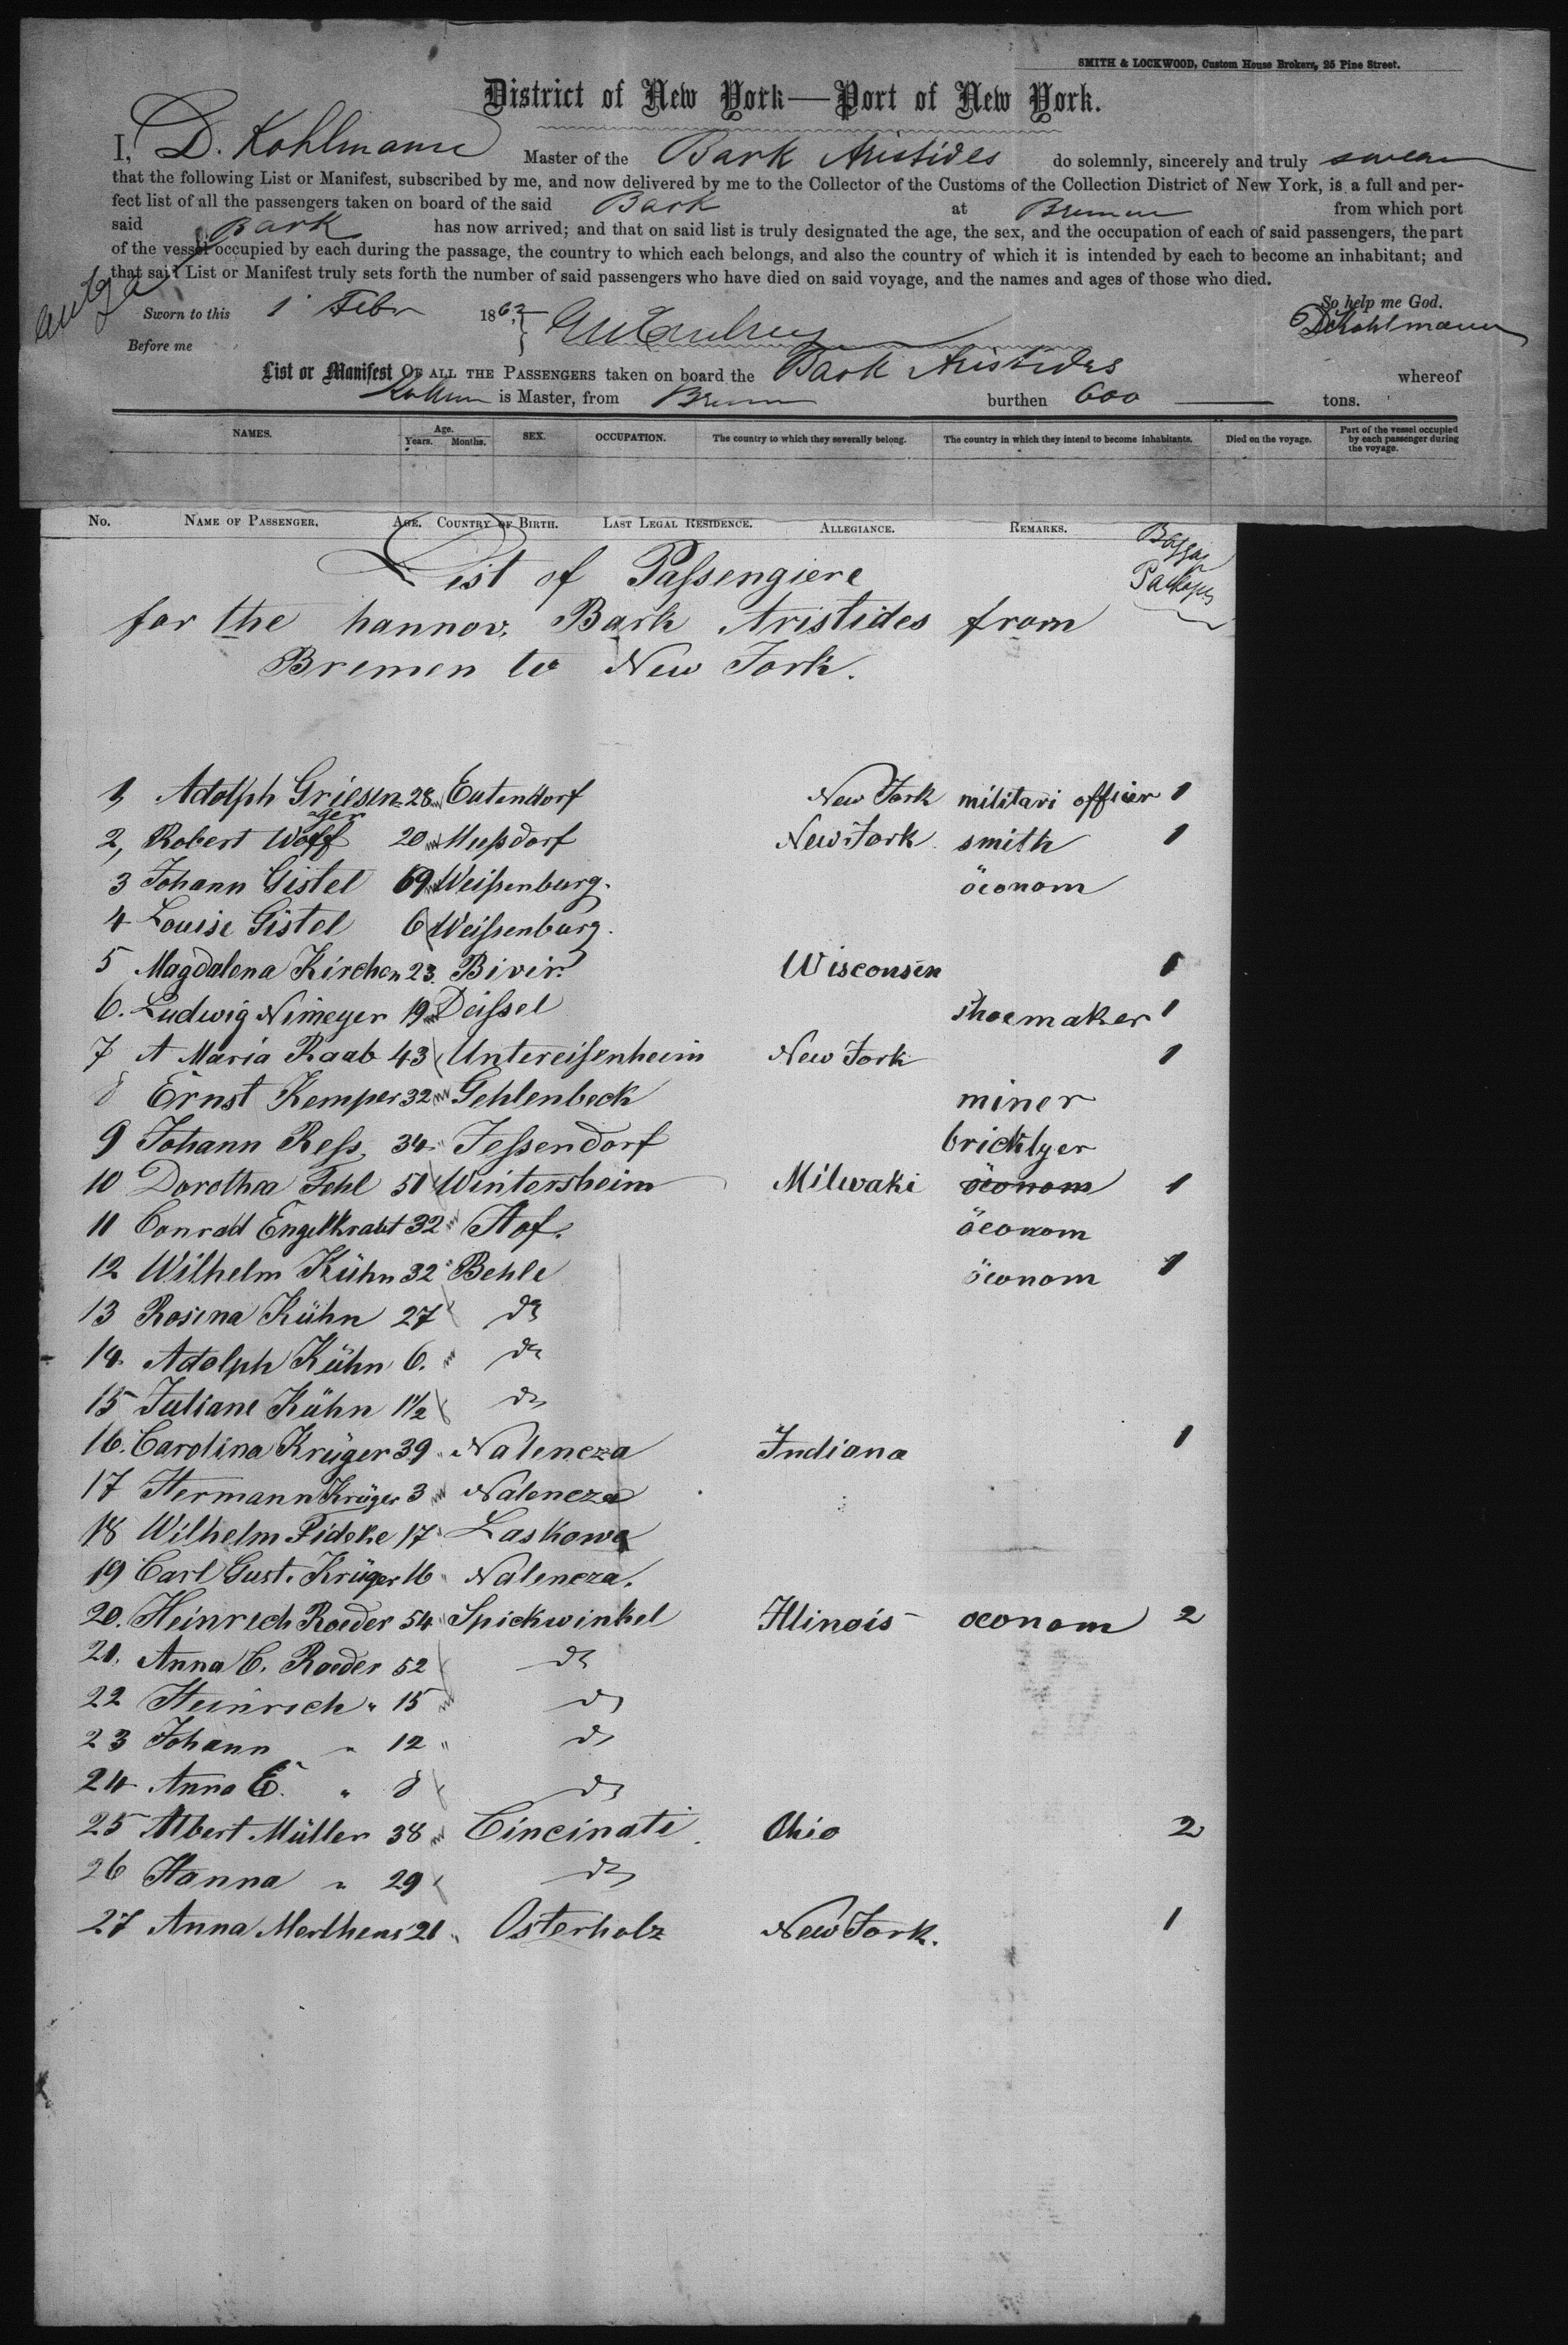 SMITH & LOCKWOOD, Custom House Brokers, 25 Pine Street.
District of New York—Port of New York.
I, D. Kohlmann Master of the Bark Aristides do solemnly, sincerely and truly swear
that the following List or Manifest, subscribed by me, and now delivered by me to the Collector of the Customs of the Collection District of New York, is a full and per-
fect list of all the passengers taken on board of the said Bark at Bremen from which port
said Bark has now arrived; and that on said list is truly designated the age, the sex, and the occupation of each of said passengers, the part
of the vessel occupied by each during the passage, the country to which each belongs, and also the country of which it is intended by each to become an inhabitant; and
that said List or Manifest truly sets forth the number of said passengers who have died on said voyage, and the names and ages of those who died.
So help me God.
Sworn to this 1 Febr 1862
DKohlmann
Before me
List or Manifest OF ALL THE PASSENGERS taken on board the Bark Aristides whereof
is Master, from Bremen burthen 600 tons.
NAMES. Age. Years. Months. SEX. OCCUPATION. The country to which they severally belong. The country in which they intend to become inhabitants. Died on the voyage. Part of the vessel occupied by each passenger during the voyage.
No. NAME OF PASSENGER. AGE. COUNTRY OF BIRTH. LAST LEGAL RESIDENCE. ALLEGIANCE. REMARKS.
List of Passengiere
for the hannov. Bark Aristides from
Bremen to New York.
1, Adolph Griesen 28 m Eutendorf New York militari officier 1
ger
2, Robert Wolff 20 m Meesdorf New York smith 1
3 Johann Gistel 69 m Weissenburg. öconom
4 Louise Gistel 6 Weissenburg.
5 Magdalena Kirchen 23. Bivir. Wisconsin 1
6. Ludwig Nimeyer 19 m Deissel shoemaker 1
7 A Maria Raab 43 Untereissenheim New York 1
8 Ernst Kemper 32 m Gehlenbeck miner
9 Johann Ress, 34 " Jessendorf bricklyer
10 Dorothea Fehl 51 Wintersheim Milwaki öconom 1
11 Conrad Engelkraut 32 " Hof. öconom
12 Wilhelm Kühn 32 " Behle öconom 1
13 Rosina Kühn 27 do
14. Adolph Kühn 6. m do
15 Juliane Kühn 1½ do
16. Carolina Krüger 39 " Nalencza Indiana 1
17 Hermann Krüger 3 m Nalencza
18 Wilhelm Fideke 17 " Laskowa
19 Carl Gust. Krüger 16 " Nalencza.
20. Heinrich Roeder 54 " Spickwinkel Illinois oconom 2
21. Anna C. Roeder 52 do
22 Heinrich " 15 m do
23 Johann " 12 " do
24 Anna E. " 8 do
25 Albert Müller 38 m Cincinati Ohio 2
26 Hanna " 29 do
27 Anna Merthens 21 " Osterholz New York. 1